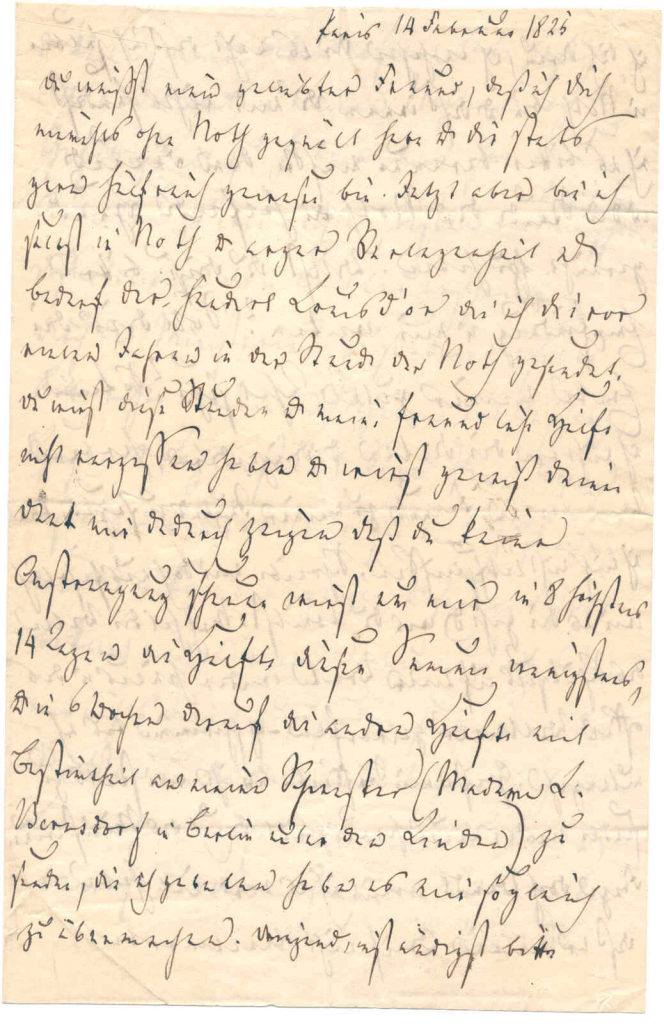 Paris 14 Februar 1825
du weißt mein geliebter Freund, daß ich dich
niemals ohne Noth gequält habe & dir stets
gern hülfreich gewesen bin. Jetzt aber bin ich
selbst in Noth & arger Verlegenheit &
bedarf der hundert Louisd'or die ich dir vor
vielen Jahren in der Stunde der Noth gesendet.
du wirst diese Stunden & meine freundliche Hülfe
nicht vergessen haben & wirst gewiß deinen
Dank mir dadurch zeigen daß du keine
Anstrengung scheuen wirst um mir in 8 höchstens
14 Tagen die Hälfte dieser Summe wenigstens,
& in 6 Wochen darauf die andre Hälfte mit
Bestimtheit an meine Schwester (Madame L.
Bernsdorf in Berlin unter den Linden) zu
senden, die ich gebeten habe es mir sogleich
zu übermachen. Dringend, inständigst bitte